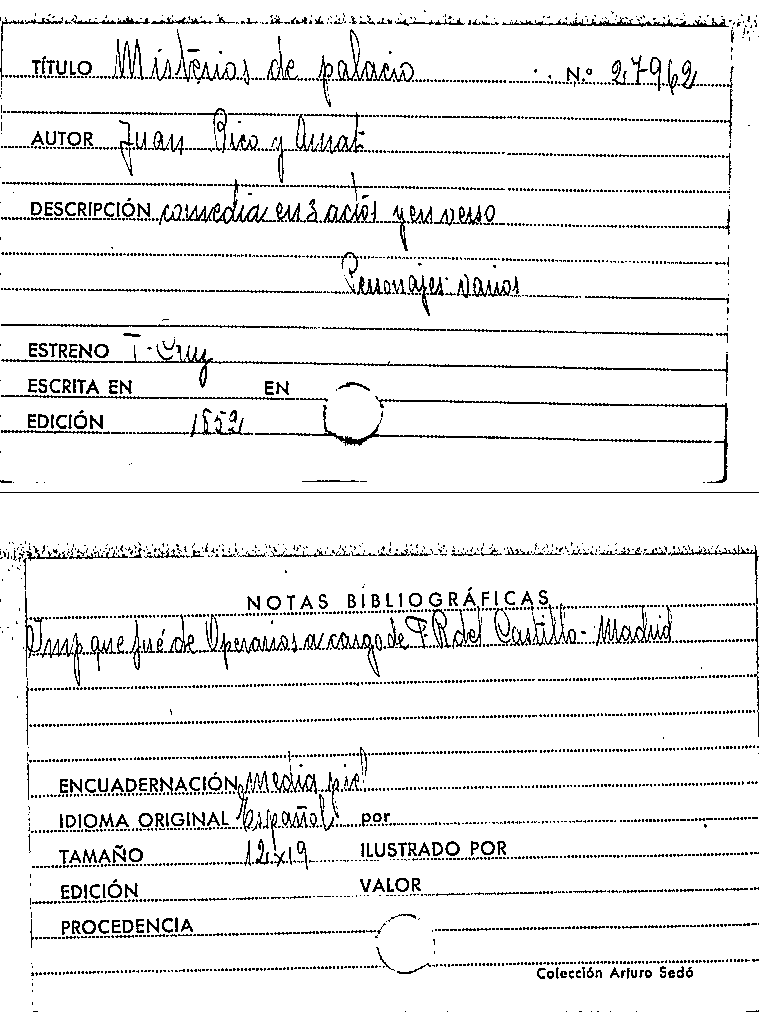 TÍTULO Misterios de palacio N.º 27962
AUTOR Juan Pico y Amat
DESCRIPCIÓN comedia en 3 actos y en verso
Personajes varios
ESTRENO T. Cruz
ESCRITA EN EN
EDICIÓN 1852
NOTAS BIBLIOGRÁFICAS
Imp que fué de Operarios a cargo de F. R. del Castillo - Madrid
ENCUADERNACIÓN Media piel
IDIOMA ORIGINAL Español por
TAMAÑO 12x19 ILUSTRADO POR
EDICIÓN VALOR
PROCEDENCIA
Colección Arturo Sedó